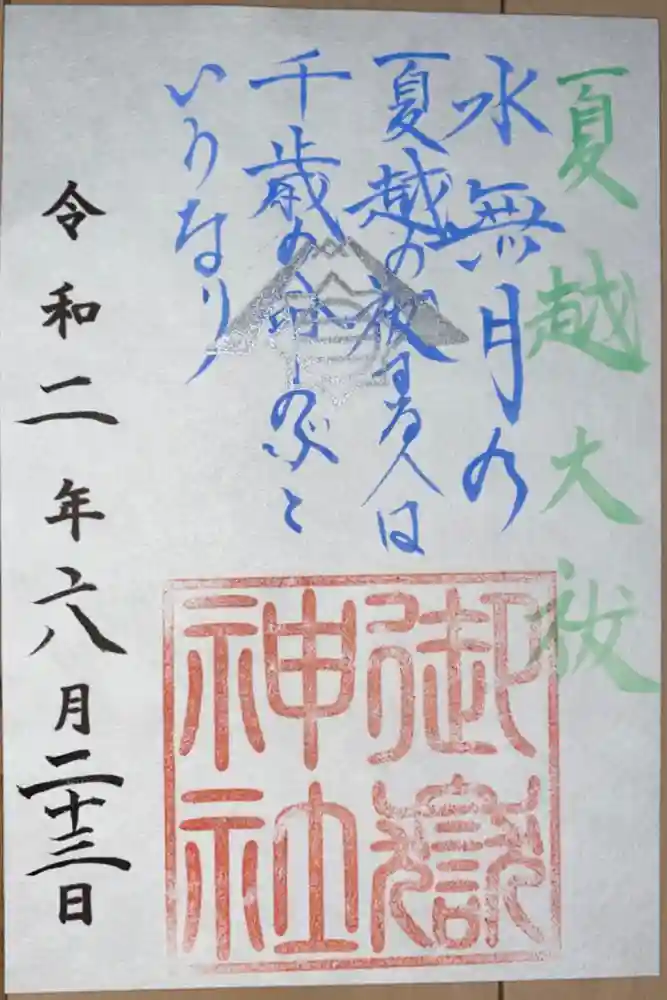 夏越大祓
水無月の
夏越の祓する人は
千歳の命のぶと
いふなり
御嶽神社
令和二年六月二十三日